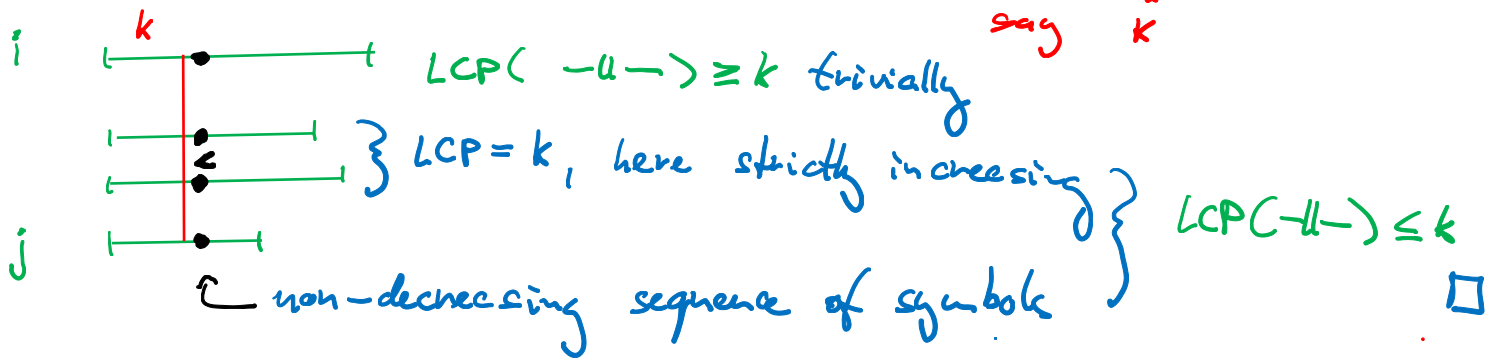 say k
i k LCP( -||- ) ≥ k trivially
} LCP = k, here strictly increasing
<
j } LCP(-||-) ≤ k
non-decreasing sequence of symbols □